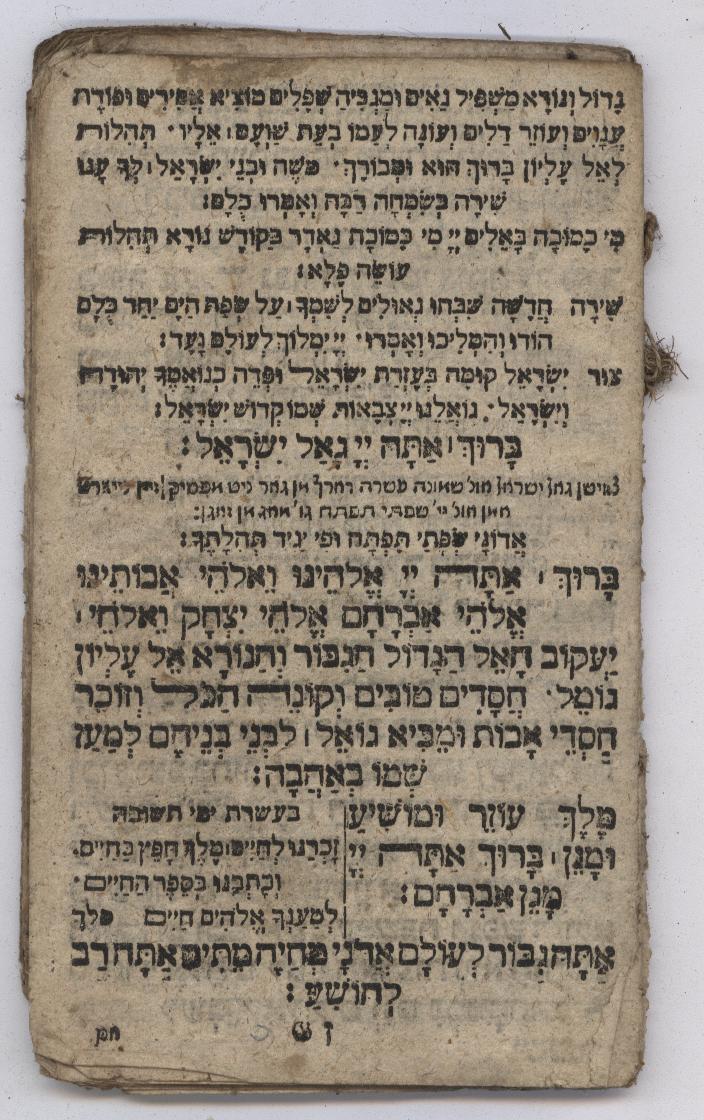 גָדוֹל וְנוֹרָא מַשְׁפִּיל גֵאִים וּמַגְבִּיהַ שְׁפָלִים מוֹצִיא אֲסִירִים וּפוֹדֶה
עֲנָוִים וְעוֹזֵר דַלִים וְעוֹנֶה לְעַמוֹ בְּעֵת שַׁוְעָם אֵלָיו · תְּהִלּוֹת
לְאֵל עֶלְיוֹן בָּרוּךְ הוּא וּמְבוֹרָךְ · משֶׁה וּבְנֵי יִשְׂרָאֵל לְךָ עָנוּ
שִׁירָה בְּשִׂמְחָה רַבָּה וְאָמְרוּ כֻלָּם :
מִי כָמוֹכָה בָּאֵלִים יְיָ מִי כָּמוֹכָה נֶאְדָר בַּקוֹדֶשׁ נוֹרָא תְהִלּוֹת
עוֹשֵׂה פֶלֶא :
שִׁירָה חֲדָשָׁה שִׁבְּחוּ גְאוּלִים לְשִׁמְךָ עַל שְׂפַת הַיָם יַחַד כֻּלָּם
הוֹדוּ וְהִמְלִיכוּ וְאָמְרוּ · יְיָ יִמְלוֹךְ לְעוֹלָם וָעֶד :
צוּר יִשְׂרָאֵל קוּמָה בְּעֶזְרַת יִשְׂרָאֵל וּפְדֵה כִנְאֻמֶךָ יְהוּדָה
וְיִשְׂרָאֵל · גוֹאֲלֵנוּ יְיָ צְבָאוֹת שְׁמוֹ קְדוֹשׁ יִשְׂרָאֵל :
בָּרוּךְ אַתָּה יְיָ גָאַל יִשְׂרָאֵל :
צווישן גאל ישראל אונ' שמונה עשרה דארף מן גאר ניט מפסיק זיין
אונ' ה' שפתי תפתח גו' מאג מן זאגן :
אֲדוֹנָי שְׂפָתַי תִּפְתָּח וּפִי יַגִיד תְּהִלָתֶךָ :
בָּרוּךְ אַתָּה יְיָ אֱלֹהֵינוּ וֵאלֹהֵי אֲבוֹתֵינוּ
אֱלֹהֵי אַבְרָהָם אֱלֹהֵי יִצְחָק וֵאלֹהֵי
יַעֲקוֹב הָאֵל הַגָדוֹל הַגִבּוֹר וְהַנוֹרָא אֵל עֶלְיוֹן
גוֹמֵל · חֲסָדִים טוֹבִים וְקוֹנֵה הַכֹּל וְזוֹכֵר
חַסְדֵי אָבוֹת וּמֵבִיא גוֹאֵל לִבְנֵי בְנֵיהֶם לְמַעַן
שְׁמוֹ בְּאַהֲבָה :
מֶלֶךְ עוֹזֵר וּמוֹשִׁיעַ
וּמָגֵן בָּרוּךְ אַתָּה יְיָ
מָגֵן אַבְרָהָם :
בעשרת ימי תשובה
זָכְרֵנוּ לְחַיִים מֶלֶךְ חָפֵץ בַּחַיִים ·
וְכָתְבֵנוּ בְּסֵפֶר הַחַיִים ·
לְמַעַנְךָ אֱלֹהִים חַיִים מלך
אַתָּה גִבּוֹר לְעוֹלָם אֲדֹנָי מְחַיֵה מֵתִים אַתָּה רַב
לְהוֹשִׁיעַ :